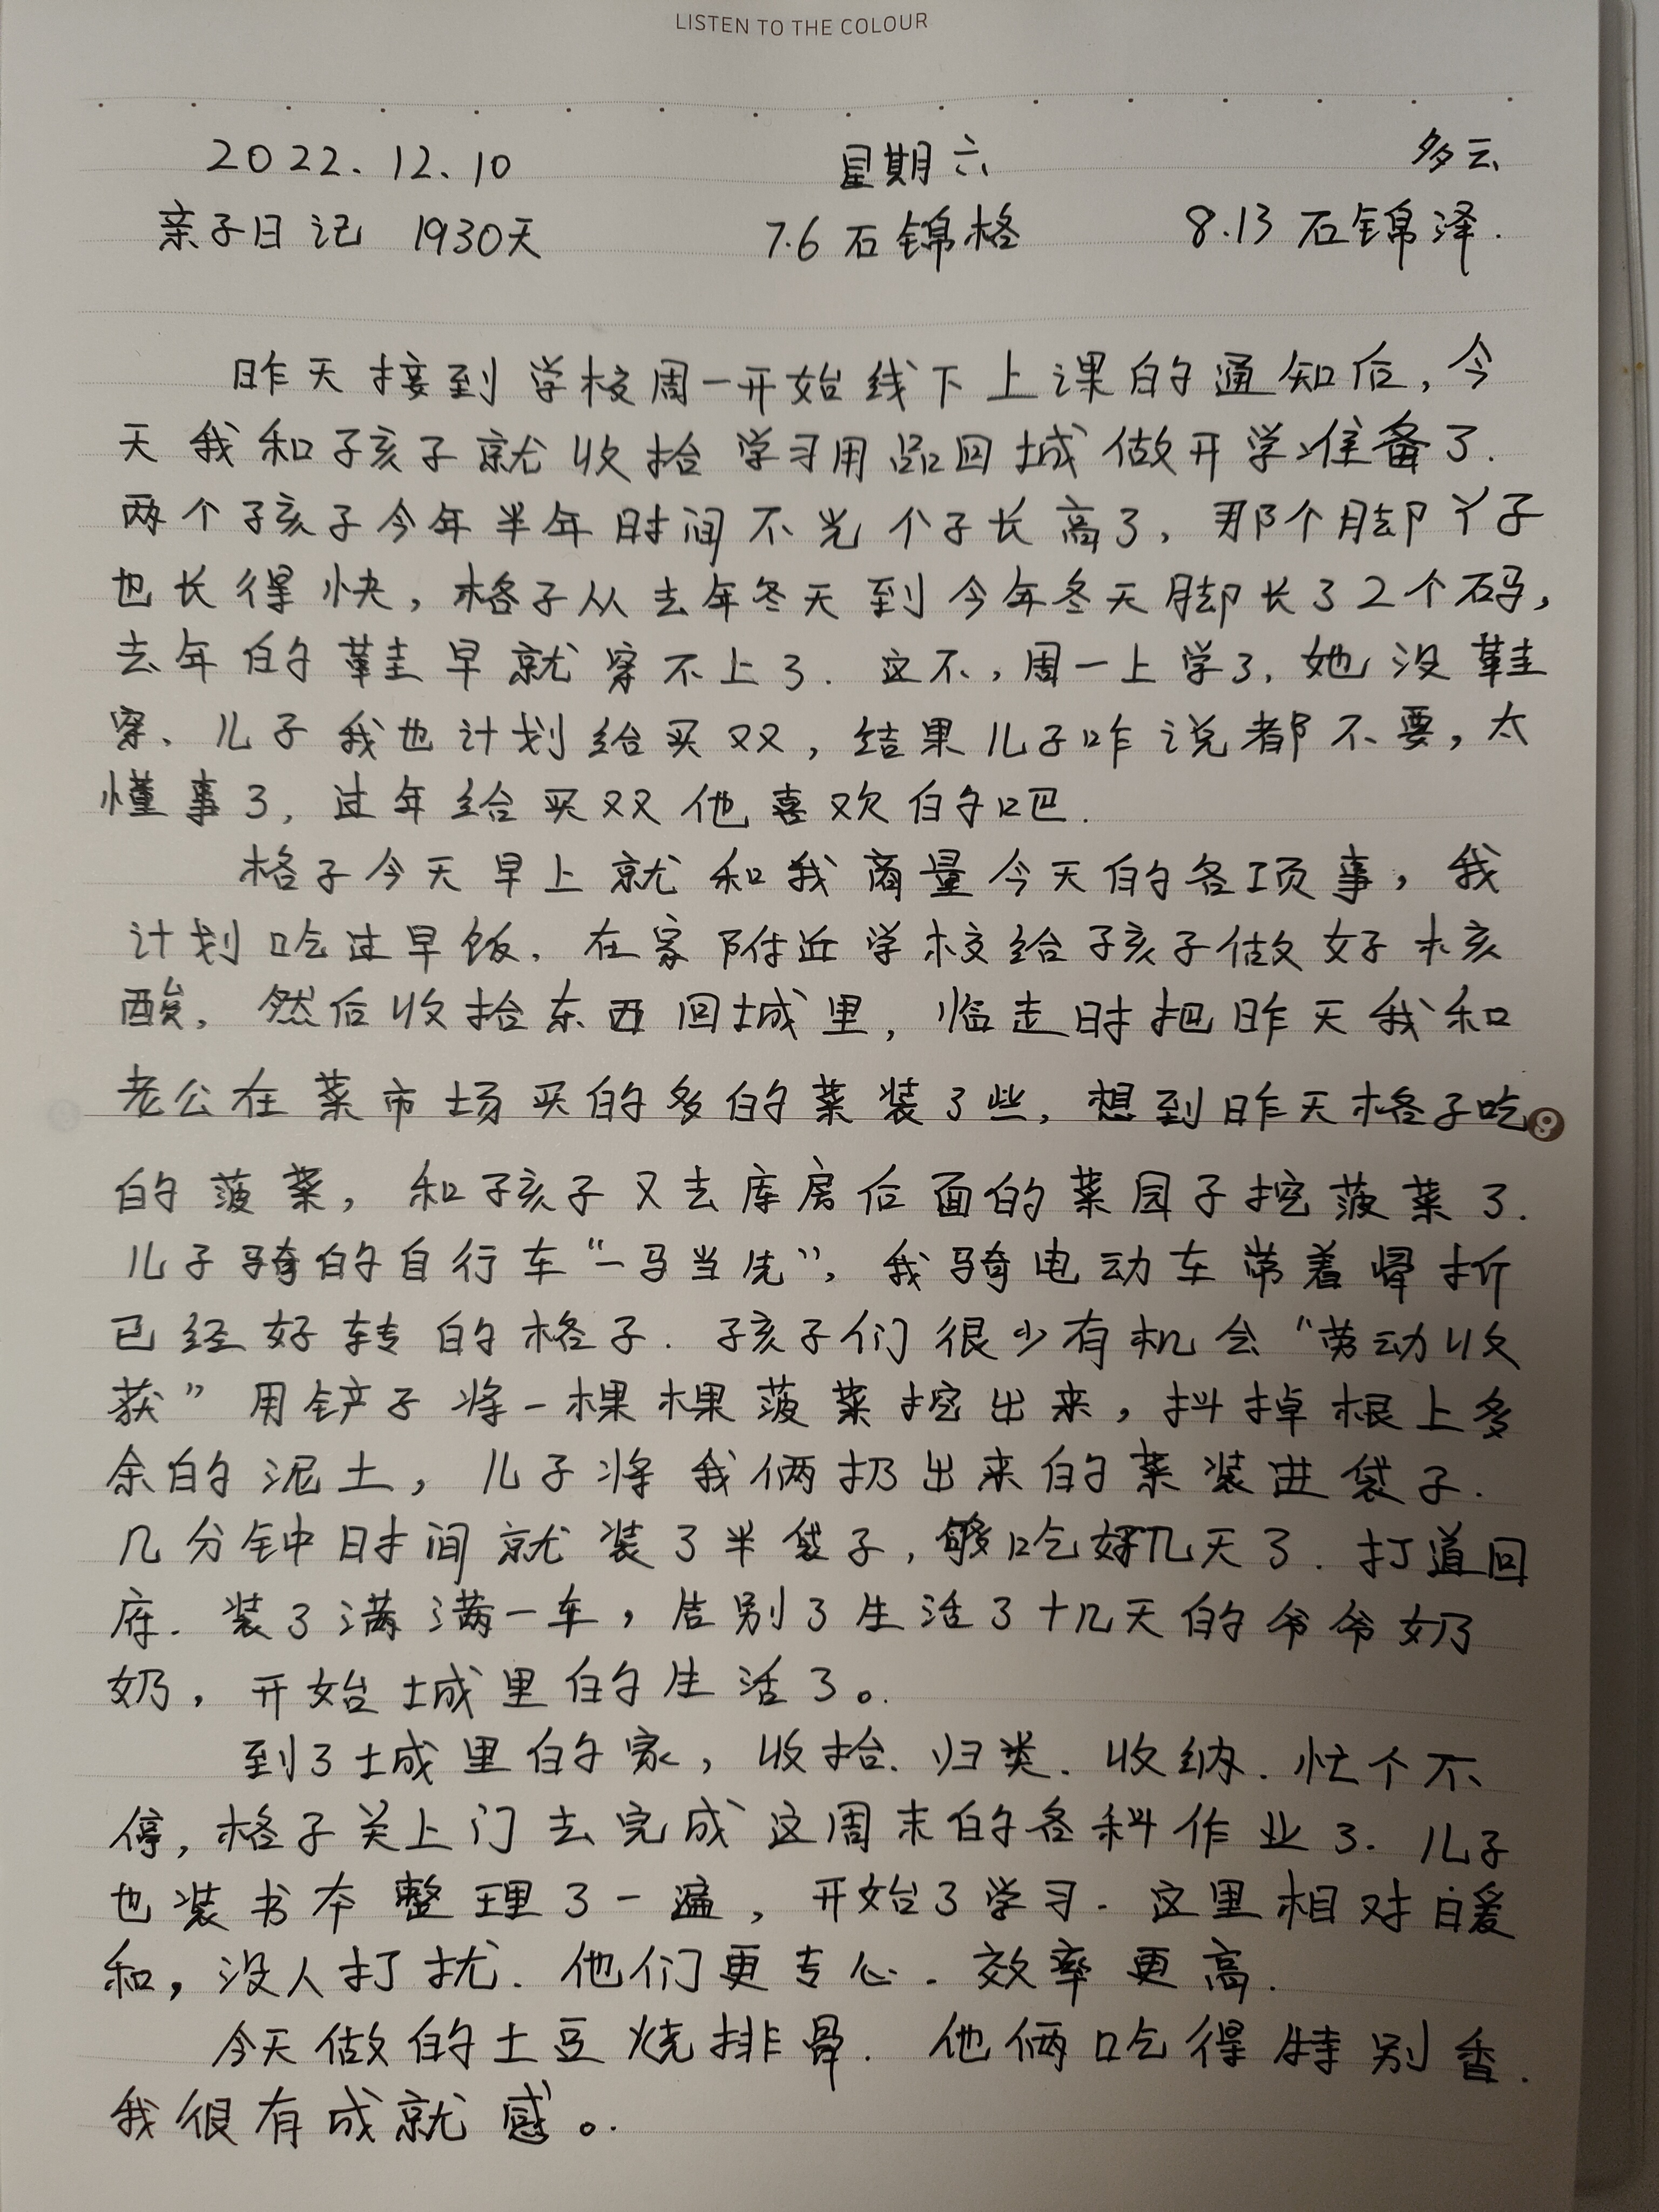 LISTEN TO THE COLOUR
2022.12.10 星期六 多云
亲子日记 1930天 7.6 石锦格 8.13 石锦泽.
昨天接到学校周一开始线下上课的通知后,今
天我和孩子就收拾学习用品回城做开学准备了.
两个孩子今年半年时间不光个子长高了,那个脚丫子
也长得快,格子从去年冬天到今年冬天脚长了2个码,
去年的鞋早就穿不上了.这不,周一上学了,她没鞋
穿、儿子我也计划给买双,结果儿子咋说都不要,太
懂事了,过年给买双他喜欢的吧.
格子今天早上就和我商量今天的各项事,我
计划吃过早饭.在家附近学校给孩子做好核
酸,然后收拾东西回城里,临走时把昨天我和
老公在菜市场买的多的菜装了些,想到昨天格子吃
的菠菜,和孩子又去库房后面的菜园子挖菠菜了.
儿子骑的自行车“一马当先”,我骑电动车带着骨折
已经好转的格子.孩子们很少有机会“劳动收
获”用铲子将一棵棵菠菜挖出来,抖掉根上多
余的泥土,儿子将我俩扔出来的菜装进袋子.
几分钟时间就装了半袋子,够吃好几天了.打道回
府.装了满满一车,告别了生活了十几天的爷爷奶
奶,开始城里的生活了。
到了城里的家,收拾.归类.收纳.忙个不
停,格子关上门去完成这周末的各科作业了.儿子
也装书本整理了一遍,开始了学习.这里相对暖
和,没人打扰.他们更专心.效率更高.
今天做的土豆烧排骨.他俩吃得特别香.
我很有成就感。